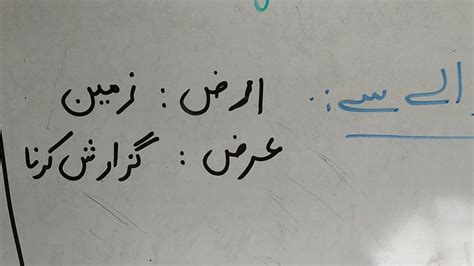 الے سے :
ارض : زمین
عرض : گزارش کرنا